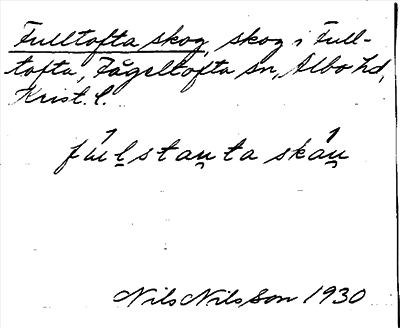 Fulltofta skog, skog i Full-
tofta, Fågeltofta sn, Albo hd,
Krist. l.
Nils Nilsson 1930